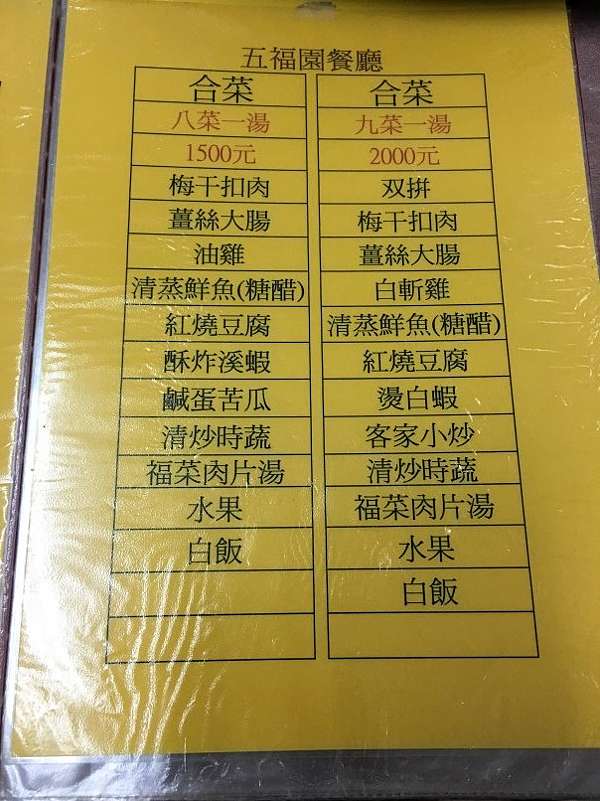 五福園餐廳
合菜
八菜一湯
1500元
梅干扣肉
薑絲大腸
油雞
清蒸鮮魚(糖醋)
紅燒豆腐
酥炸溪蝦
鹹蛋苦瓜
清炒時蔬
福菜肉片湯
水果
白飯
合菜
九菜一湯
2000元
双拼
梅干扣肉
薑絲大腸
白斬雞
清蒸鮮魚(糖醋)
紅燒豆腐
燙白蝦
客家小炒
清炒時蔬
福菜肉片湯
水果
白飯